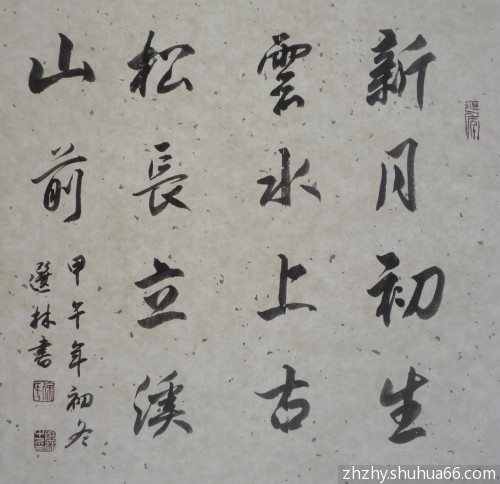 新月初生
雲水上古
松長立溪
山前
甲午年初冬
選林書
zhzhy.shuhua66.com